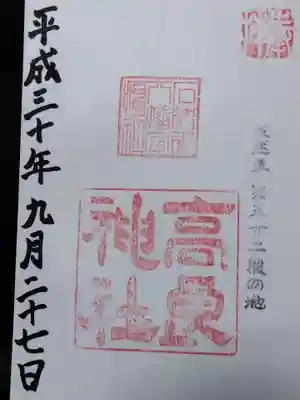 徒然草 第五十二段の地
高良
神社
平成三十年九月二十七日